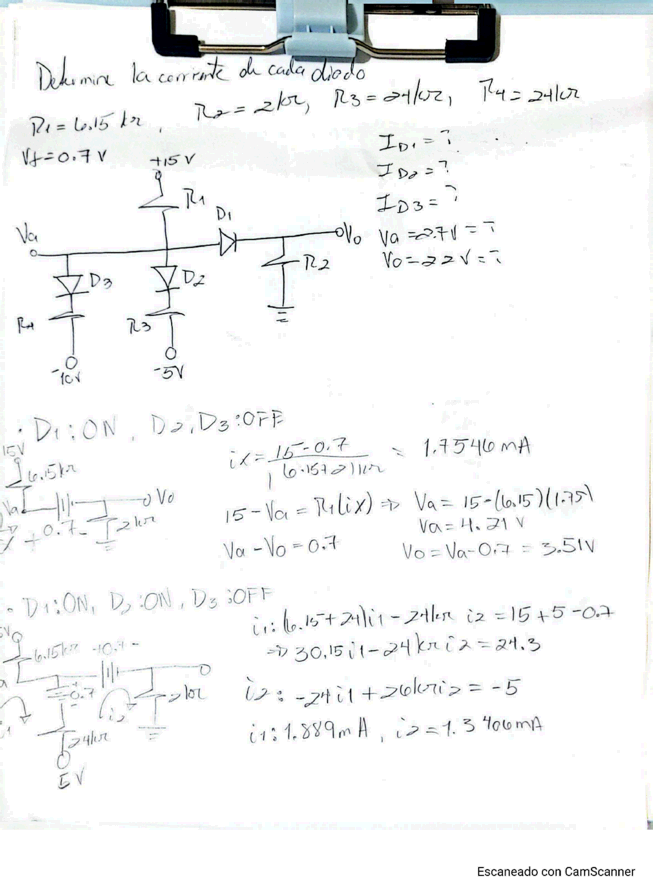 Determine la corriente de cada diodo
R1 = 6.15 kr, R2 = 2kr, R3 = 24kr, R4 = 24kr
Vf = 0.7 V
ID1 = ?
ID2 = ?
ID3 = ?
Va = 2.7V = ?
Vo = 22V = ?
+15 V
R1
D1
Va
Vo
D3
D2
R2
R4
R3
-10V
-5V
· D1: ON, D2, D3: OFF
15V
6.5kr
Va
Vo
+ 0.7 -
2kr
ix = 15-0.7 / (6.15+2)kr = 1.7546 mA
15 - Va = R1(ix) => Va = 15-(6.15)(1.75)
Va = 4.21 V
Va - Vo = 0.7
Vo = Va - 0.7 = 3.51V
- D1: ON, D2: ON, D3: OFF
6.15kr
+0.7 -
0.7
2kr
i2
24kr
5V
i1: (6.15+24)i1 - 24kr i2 = 15+5-0.7
=> 30.15i1 - 24kr i2 = 24.3
i2: -24i1 + 26kr i2 = -5
i1: 1.889mA, i2 = 1.3406mA
Escaneado con CamScanner